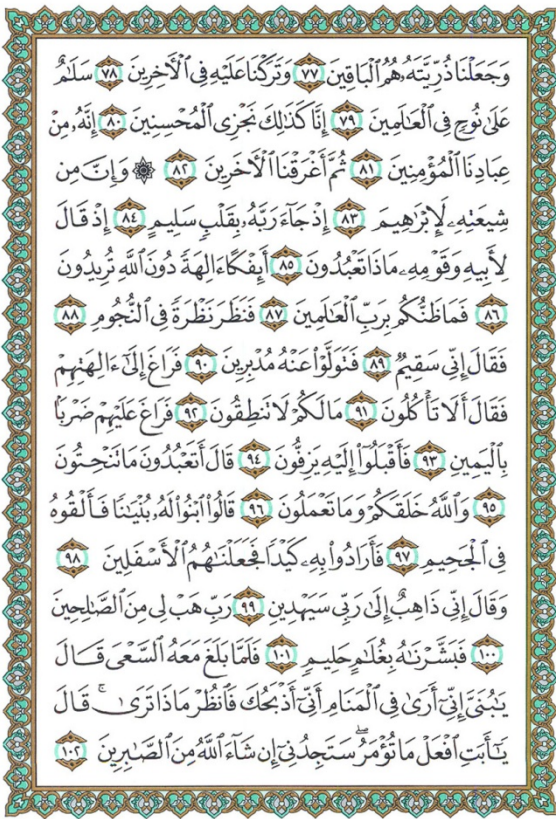 وَجَعَلْنَا ذُرِّيَّتَهُۥ هُمُ ٱلْبَاقِينَ ٧٧ وَتَرَكْنَا عَلَيْهِ فِى ٱلْءَاخِرِينَ ٧٨ سَلَٰمٌ
عَلَىٰ نُوحٍ فِى ٱلْعَٰلَمِينَ ٧٩ إِنَّا كَذَٰلِكَ نَجْزِى ٱلْمُحْسِنِينَ ٨٠ إِنَّهُۥ مِنْ
عِبَادِنَا ٱلْمُؤْمِنِينَ ٨١ ثُمَّ أَغْرَقْنَا ٱلْءَاخَرِينَ ٨٢ ۞ وَإِنَّ مِن
شِيعَتِهِۦ لَإِبْرَٰهِيمَ ٨٣ إِذْ جَآءَ رَبَّهُۥ بِقَلْبٍ سَلِيمٍ ٨٤ إِذْ قَالَ
لِأَبِيهِ وَقَوْمِهِۦ مَاذَا تَعْبُدُونَ ٨٥ أَئِفْكًا ءَالِهَةً دُونَ ٱللَّهِ تُرِيدُونَ
٨٦ فَمَا ظَنُّكُم بِرَبِّ ٱلْعَٰلَمِينَ ٨٧ فَنَظَرَ نَظْرَةً فِى ٱلنُّجُومِ ٨٨
فَقَالَ إِنِّى سَقِيمٌ ٨٩ فَتَوَلَّوْا۟ عَنْهُ مُدْبِرِينَ ٩٠ فَرَاغَ إِلَىٰٓ ءَالِهَتِهِمْ
فَقَالَ أَلَا تَأْكُلُونَ ٩١ مَا لَكُمْ لَا تَنطِقُونَ ٩٢ فَرَاغَ عَلَيْهِمْ ضَرْبًۢا
بِٱلْيَمِينِ ٩٣ فَأَقْبَلُوٓا۟ إِلَيْهِ يَزِفُّونَ ٩٤ قَالَ أَتَعْبُدُونَ مَا تَنْحِتُونَ
٩٥ وَٱللَّهُ خَلَقَكُمْ وَمَا تَعْمَلُونَ ٩٦ قَالُوا۟ ٱبْنُوا۟ لَهُۥ بُنْيَٰنًا فَأَلْقُوهُ
فِى ٱلْجَحِيمِ ٩٧ فَأَرَادُوا۟ بِهِۦ كَيْدًا فَجَعَلْنَٰهُمُ ٱلْأَسْفَلِينَ ٩٨
وَقَالَ إِنِّى ذَاهِبٌ إِلَىٰ رَبِّى سَيَهْدِينِ ٩٩ رَبِّ هَبْ لِى مِنَ ٱلصَّٰلِحِينَ
١٠٠ فَبَشَّرْنَٰهُ بِغُلَٰمٍ حَلِيمٍ ١٠١ فَلَمَّا بَلَغَ مَعَهُ ٱلسَّعْىَ قَالَ
يَٰبُنَىَّ إِنِّىٓ أَرَىٰ فِى ٱلْمَنَامِ أَنِّىٓ أَذْبَحُكَ فَٱنظُرْ مَاذَا تَرَىٰ ۚ قَالَ
يَٰٓأَبَتِ ٱفْعَلْ مَا تُؤْمَرُ ۖ سَتَجِدُنِىٓ إِن شَآءَ ٱللَّهُ مِنَ ٱلصَّٰبِرِينَ ١٠٢